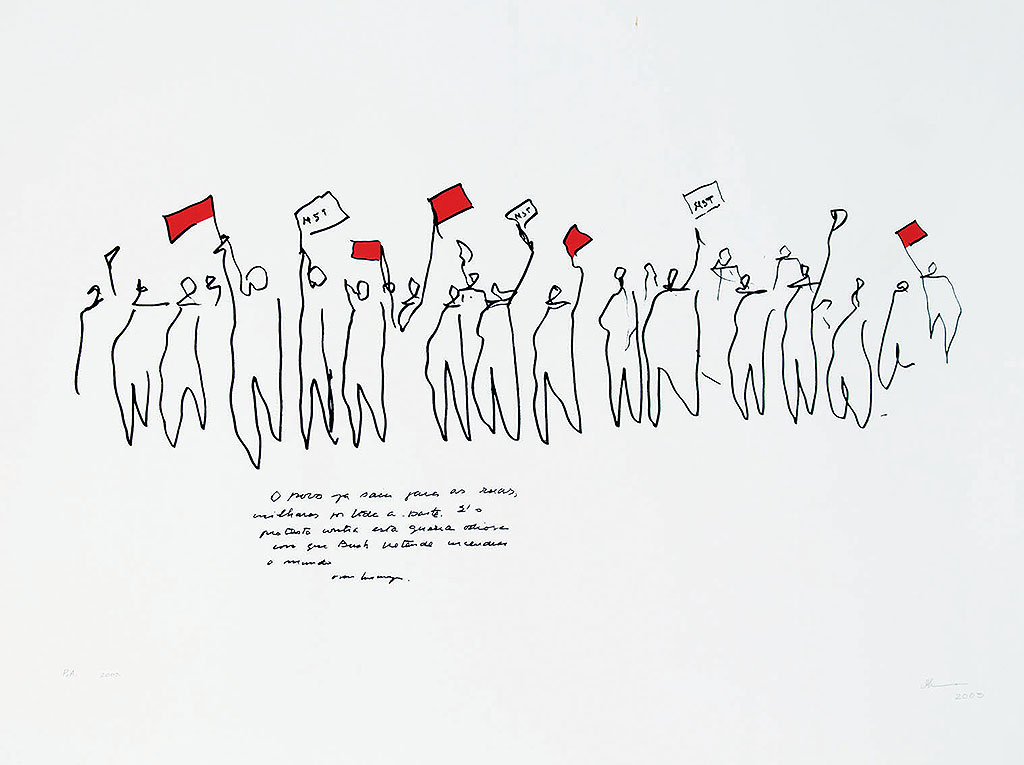 MST
MST
MST
O povo ja saiu para as ruas,
milhares por toda a parte. É o
protesto contra esta guerra odiosa
com que Bush pretende incendiar
o mundo
P.A. 2003
2003